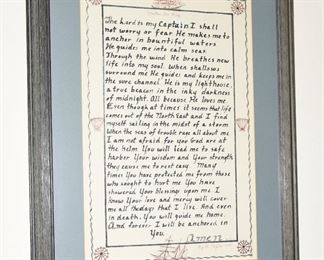 The Lord is my Captain I shall
not worry or fear. He makes me to
anchor in bountiful waters
He guides me into calm seas.
Through the wind He breathes new
life into my soul. When shallows
surround me He guides and keeps me in
the sure channel. He is my lighthouse
a true beacon in the inky darkness
of midnight. All because He loves me
Even though at times it seems that life
comes out of the North East and I find
myself sailing in the midst of a storm.
When the seas of trouble rage all about me
I am not afraid for you God are at
the helm. You will lead me to safe
harbor. Your wisdom and Your strength
they cause me to rest easy. Many
times You have protected me from those
who sought to hurt me You have
showered Your blessings upon me. I
know Your love and mercy will cover
me all the days that I live. And even
in death. You will guide me home.
And forever I will be anchored in
You
Amen